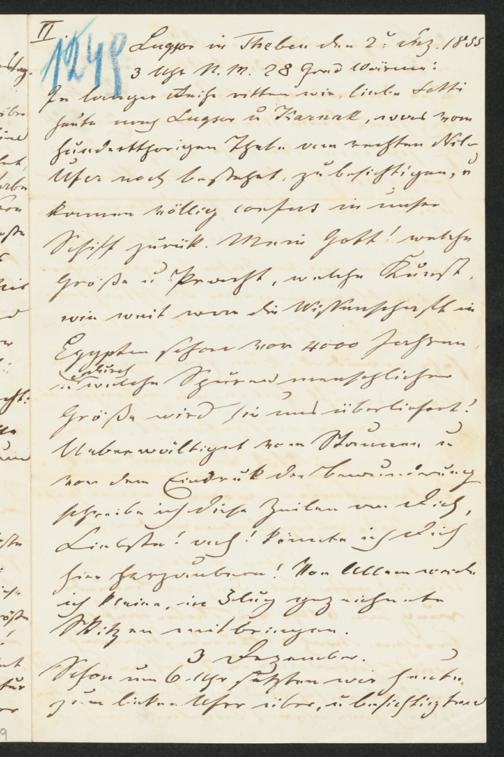 II.
1249
Lugsor in Theben den 2t Dez. 1855
3 Uhr N. M. 28 Grad Wärme:
In langer Reihe ritten wir, liebe Lotti
heute nach Lugsor u Karnak, was vom
hundertthorigen Theben am rechten Nil-
Ufer noch besteht, zu besichtigen, u
kamen völlig confus in unser
Schiff zurük. Mein Gott! welche
Größe u Pracht, welche Kunst,
wie weit war die Wissenschaft in
Egypten schon vor 4000 Jahren,
u welche Spuren menschlicher
Größe wird hier uns überliefert!
Ueberwältiget vom Staunen u
von dem Eindruk der Bewunderung
schreibe ich diese Zeilen an Dich,
Liebste! ach! könnte ich Dich
hier herzaubern! Von Allem werde
ich kleine, im Flug gezeichnete
Skitzen mitbringen.
3 Dezember.
Schon um 6 Uhr setzten wir heute
zum linken Ufer über, u besichtigten